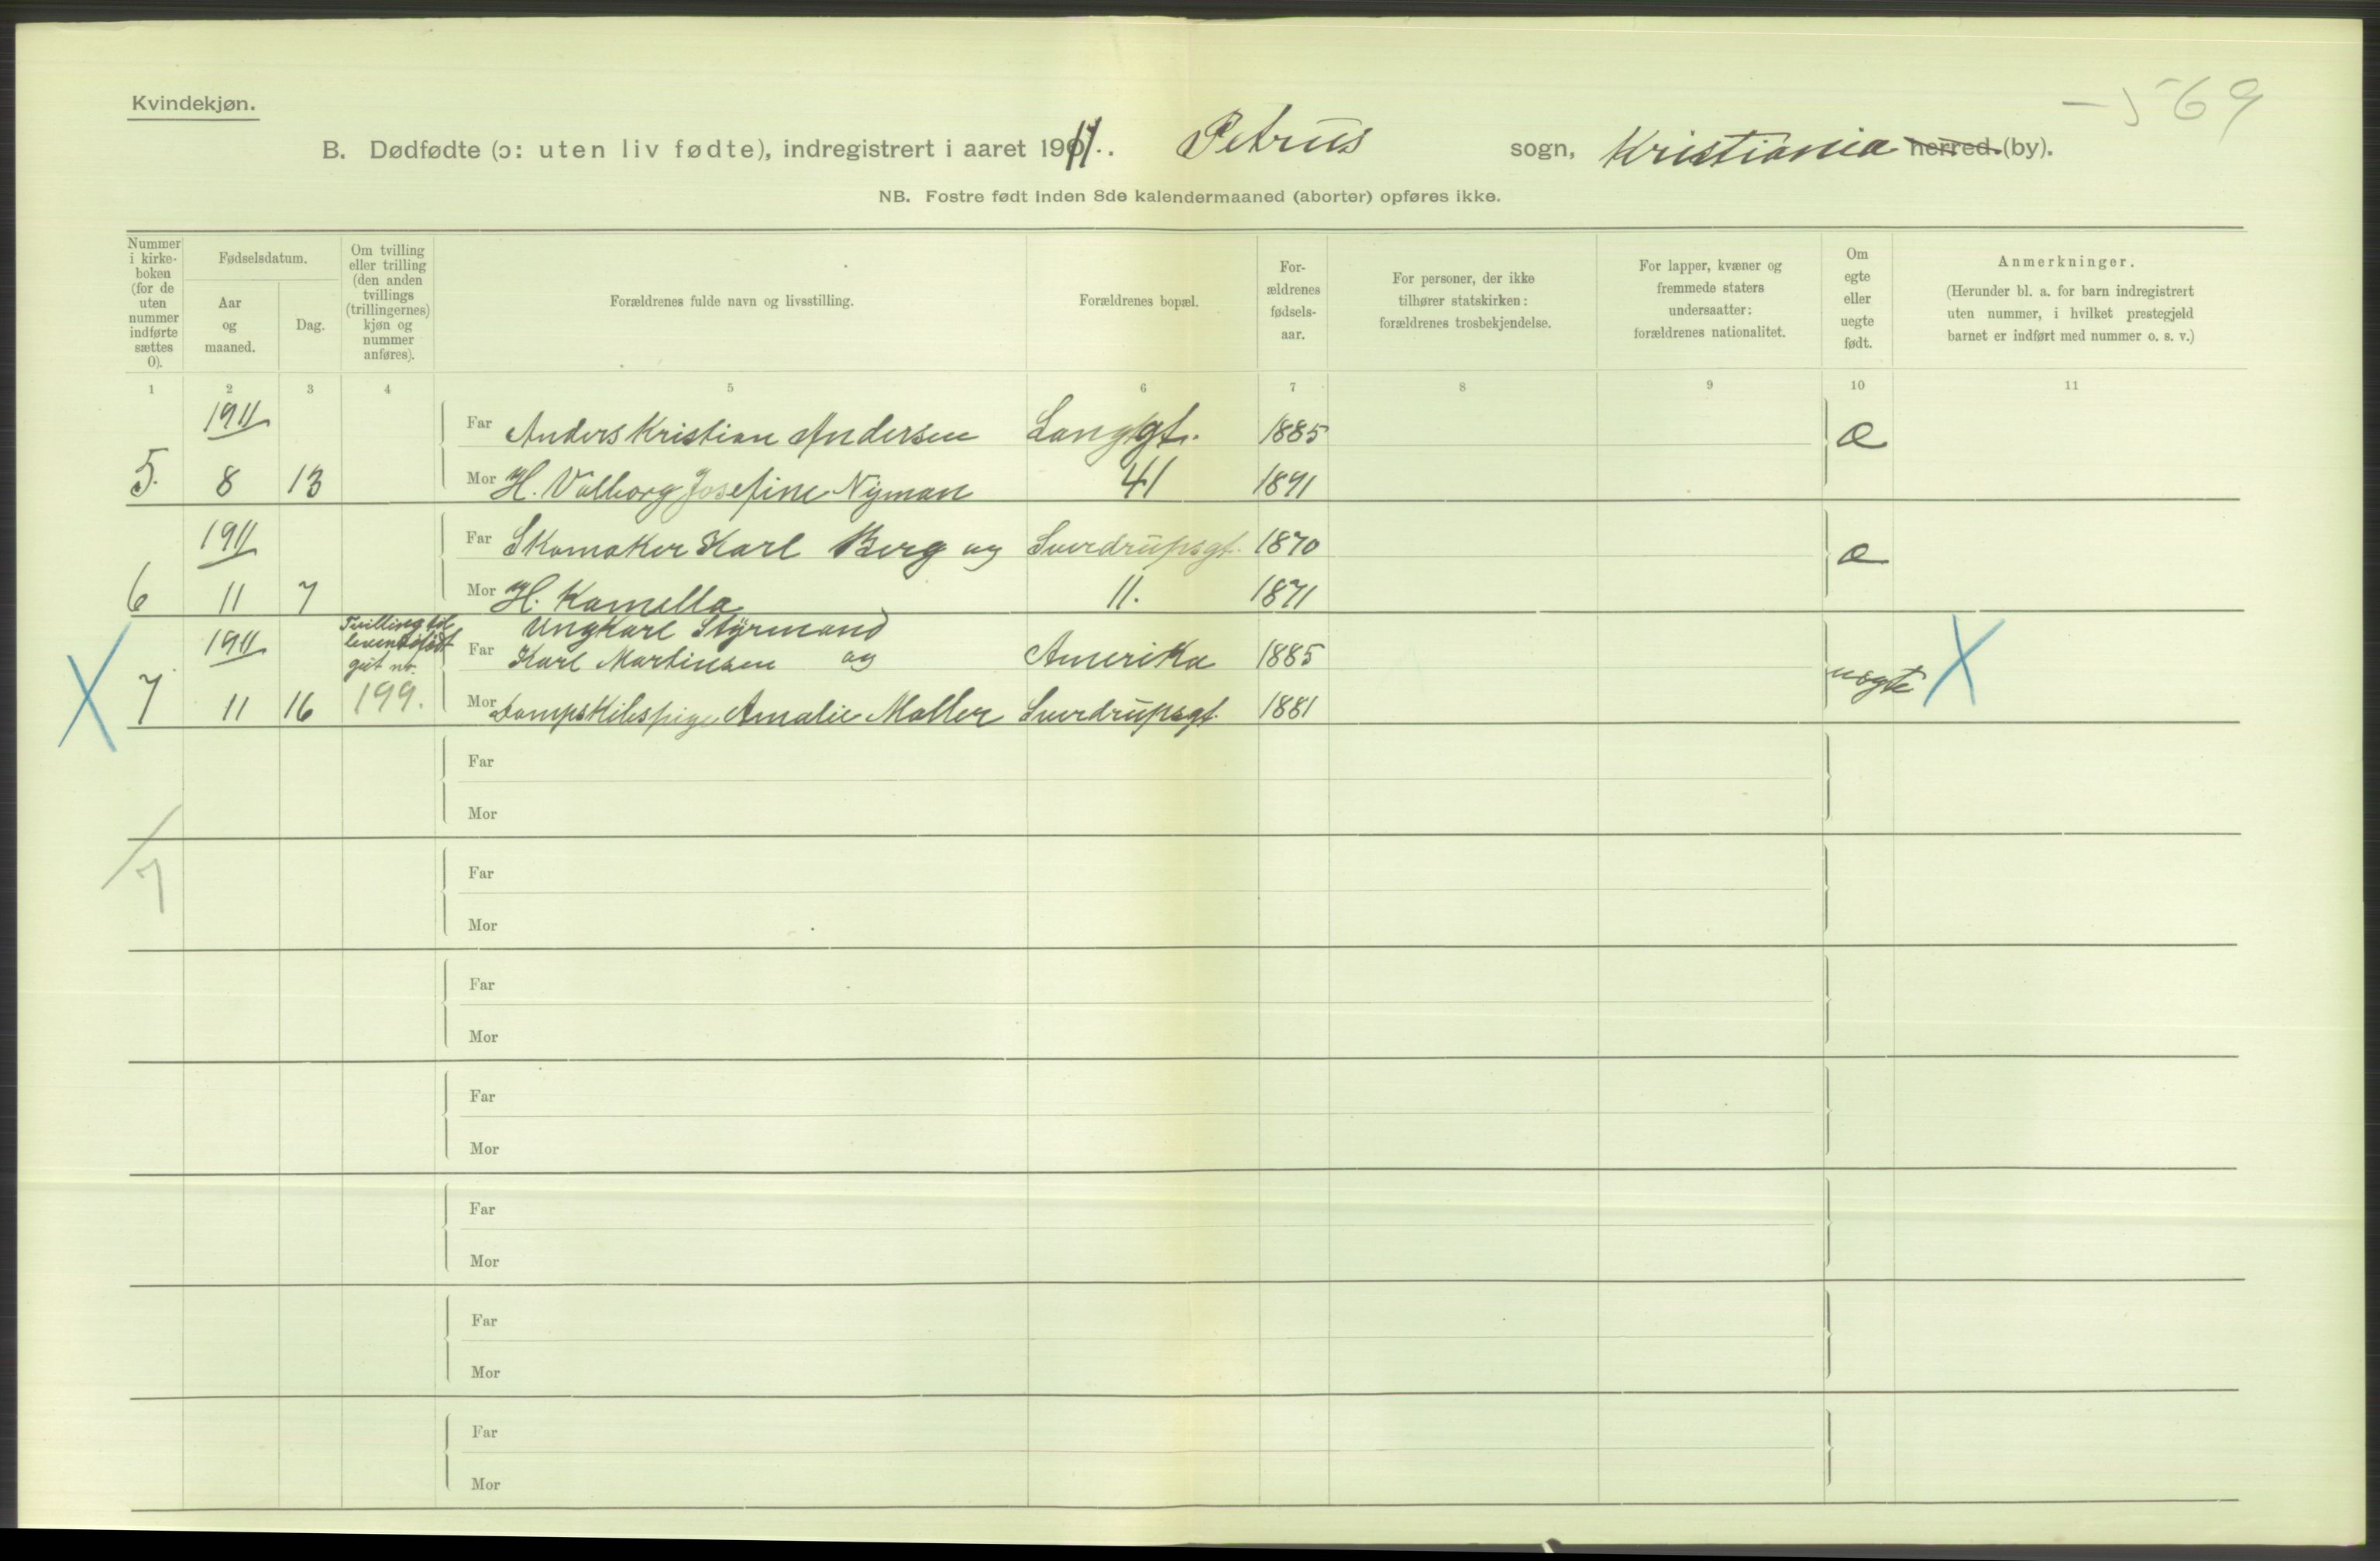 569
Kvindekjøn.
B. Dødfødte (ɔ: uten liv fødte), indregistrert i aaret 1911. Petrus sogn, Kristiania herred. (by).
NB. Fostre født inden 8de kalendermaaned (aborter) opføres ikke.
Nummer i kirke-boken (for de uten nummer indførte sættes 0).
Fødselsdatum.
Aar og maaned.
Dag.
Om tvilling eller trilling (den anden tvillings (trillingernes) kjøn og nummer anføres).
Forældrenes fulde navn og livsstilling.
Forældrenes bopæl.
For-ældrenes fødsels-aar.
For personer, der ikke tilhører statskirken: forældrenes trosbekjendelse.
For lapper, kvæner og fremmede staters undersaatter: forældrenes nationalitet.
Om egte eller uegte født.
Anmerkninger.
(Herunder bl. a. for barn indregistrert uten nummer, i hvilket prestegjeld barnet er indført med nummer o. s. v.)
1 2 3 4 5 6 7 8 9 10 11
1911 Far Anders Kristian Andersen Langgt. 1885 e
5. 8 13 Mor H. Valborg Josefine Nyman 41 1891
1911 Far Skomaker Karl Berg og Sverdrupsgt. 1870 e
6 11 7 Mor H. Kamilla 11. 1871
Tvilling til levendefødt gut nr. 199.
Ungkarl Styrmand
1911 Far Karl Martinsen og Amerika 1885 uegte
X 7 11 16 Mor Dampskibspige Amalie Møller Sverdrupsgt. 1881 X
Far
Mor
7
Far
Mor
Far
Mor
Far
Mor
Far
Mor
Far
Mor
Far
Mor